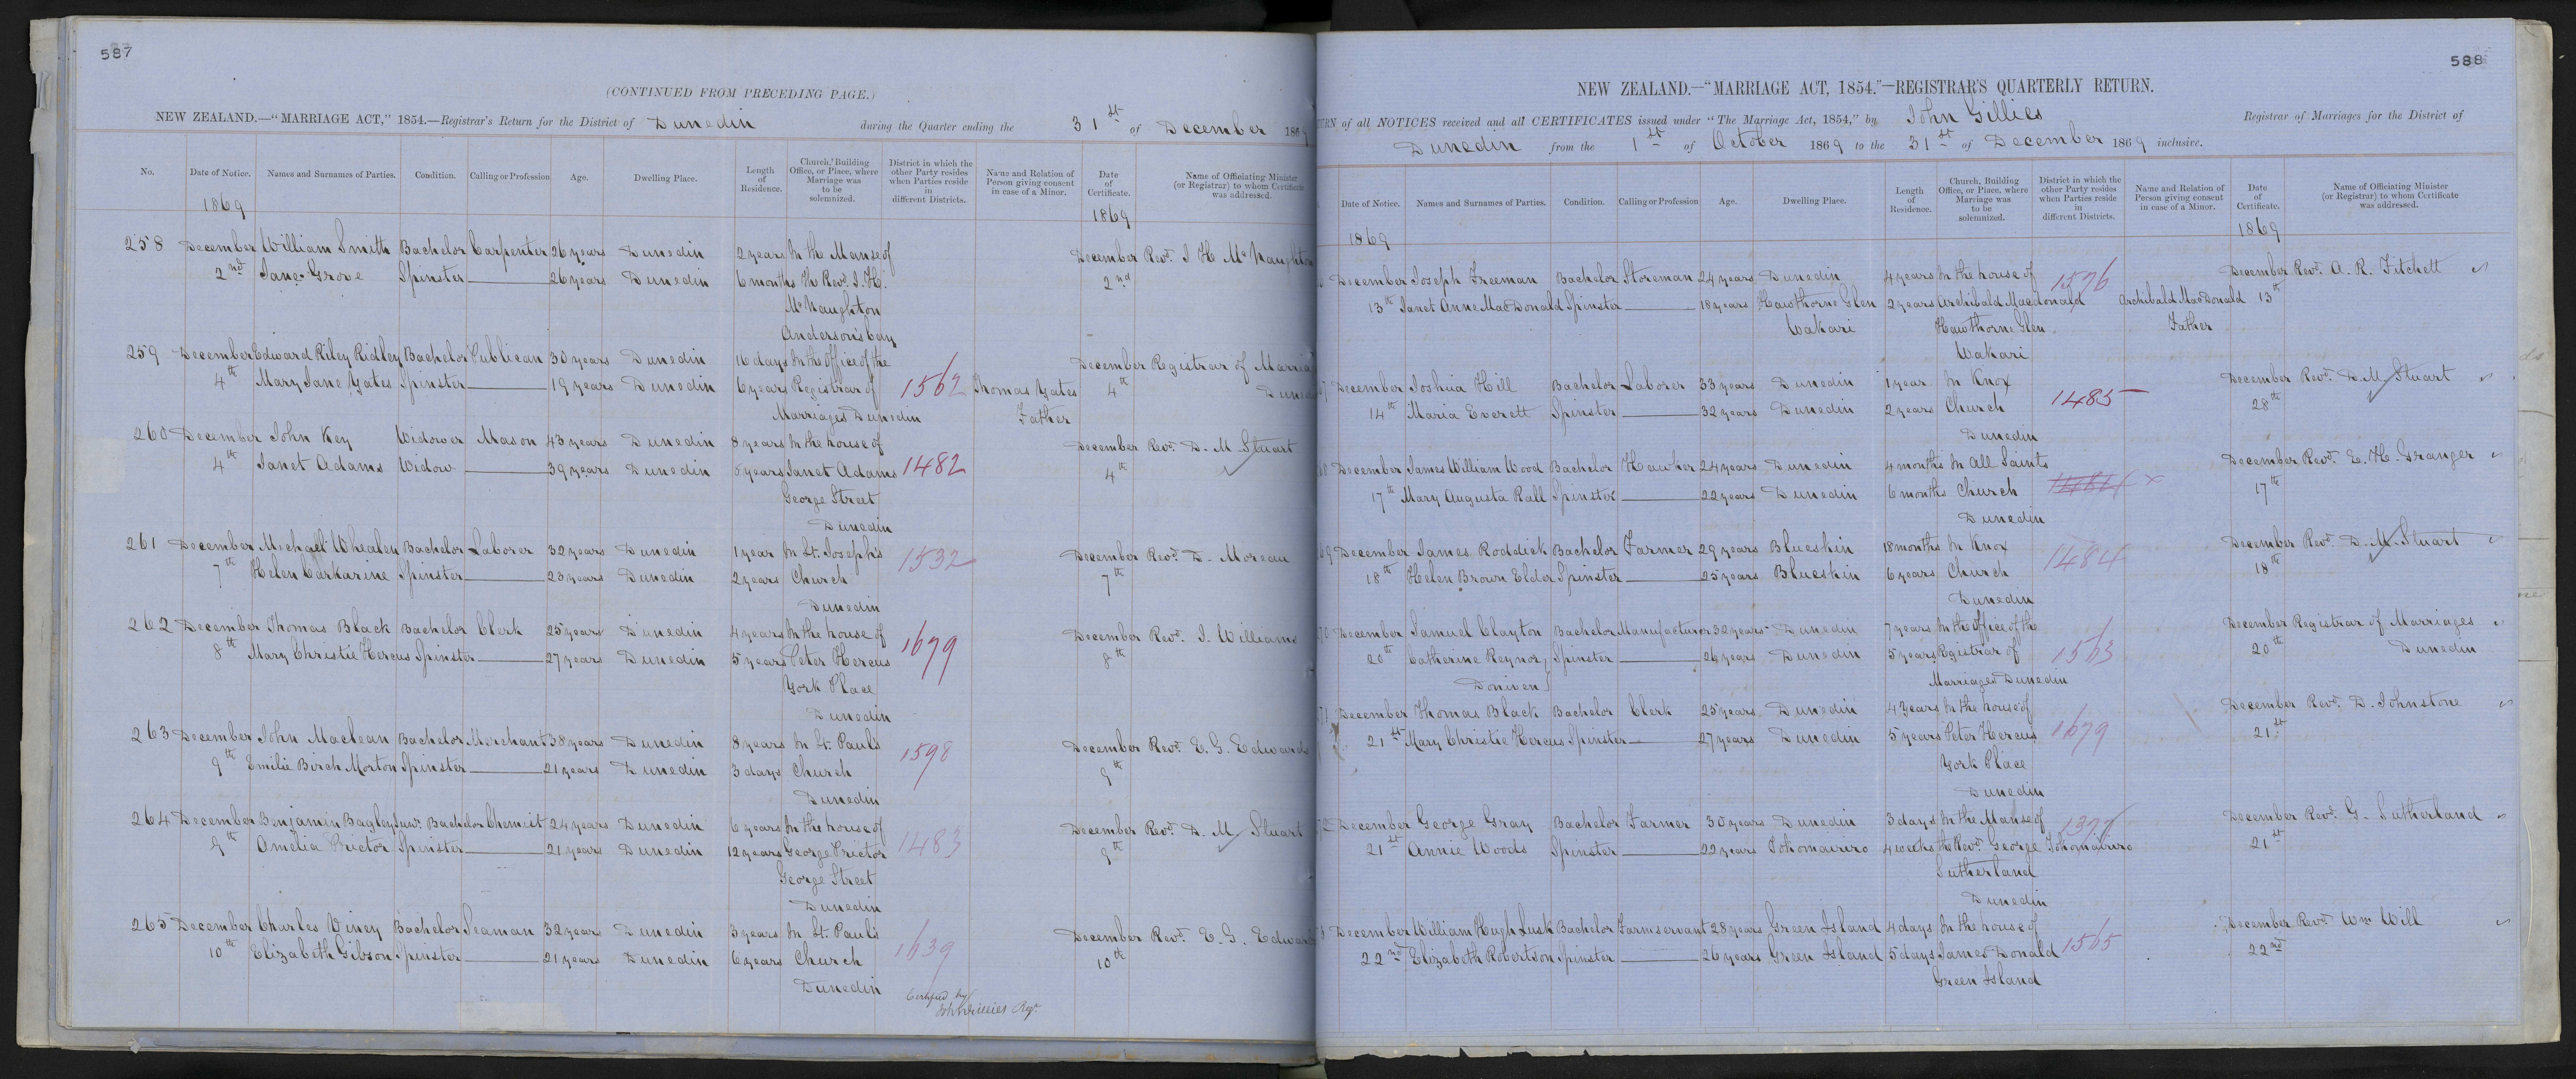 587
(CONTINUED FROM PRECEDING PAGE.)
NEW ZEALAND.—"MARRIAGE ACT," 1854.—Registrar's Return for the District of Dunedin during the Quarter ending the 31st of December 1869
No. Date of Notice. Names and Surnames of Parties. Condition. Calling or Profession Age. Dwelling Place. Length of Residence. Church, Building Office, or Place, where Marriage was to be solemnized. District in which the other Party resides when Parties reside in different Districts. Name and Relation of Person giving consent in case of a Minor. Date of Certificate. Name of Officiating Minister (or Registrar) to whom Certificate was addressed.
1869 1869
258 December William Smith Bachelor Carpenter 26 years Dunedin 2 years In the Manse of December Revd. I H McNaughton
2nd Jane Grove Spinster 26 years Dunedin 6 months the Revd. I. H. 2nd
McNaughton
Anderson's bay
259 December Edward Riley Ridley Bachelor Publican 30 years Dunedin 16 days In the Office of the December Registrar of
4th Mary Jane Yates Spinster 19 years Dunedin 6 years Registrar of 1562 Thomas Yates 4th
Marriages Dunedin Father
260 December John Key Widower Mason 43 years Dunedin 8 years In the house of December Revd. D. M Stuart
4th Janet Adams Widow 39 years Dunedin years Janet Adams 1482 4th
George Street
Dunedin
261 December Michael Whealen Bachelor Laborer 32 years Dunedin 1 year In St. Joseph's December Revd. D. Moreau
7th Helen Carkarine Spinster 23 years Dunedin 2 years Church 1532 7th
Dunedin
262 December Thomas Black Bachelor Clerk 25 years Dunedin 4 years In the house of December Revd. J. Williams
8th Mary Christie Hercus Spinster 27 years Dunedin 5 years Peter Hercus 1679 8th
York Place
Dunedin
263 December John Maclean Bachelor Merchant 38 years Dunedin 8 years In St. Paul's December Revd. E. G. Edwards
9th Emilie Birch Morton Spinster 21 years Dunedin 3 days Church 1598 9th
Dunedin
264 December Benjamin Bagley Bachelor Chemist 24 years Dunedin 6 years In the house of December Revd. D. M Stuart
9th Amelia Prictor Spinster 21 years Dunedin 12 years George Prictor 1483 9th
George Street
Dunedin
265 December Charles Viney Bachelor Seaman 32 years Dunedin 3 years In St. Paul's December Revd. E. G.
10th Elizabeth Gibson Spinster 21 years Dunedin 6 years Church 1639 10th
Dunedin
Certified by
John Gillies Regr.
588
NEW ZEALAND.—"MARRIAGE ACT, 1854."—REGISTRAR'S QUARTERLY RETURN.
of all NOTICES received and all CERTIFICATES issued under "The Marriage Act, 1854," by John Gillies Registrar of Marriages for the District of
Dunedin from the 1st of October 1869 to the 31st of December 1869 inclusive.
Date of Notice. Names and Surnames of Parties. Condition. Calling or Profession Age. Dwelling Place. Length of Residence. Church, Building Office, or Place, where Marriage was to be solemnized. District in which the other Party resides when Parties reside in different Districts. Name and Relation of Person giving consent in case of a Minor. Date of Certificate. Name of Officiating Minister (or Registrar) to whom Certificate was addressed.
1869 1869
December Joseph Freeman Bachelor Storeman 24 years Dunedin 4 years In the house of 1576 December Revd. A. R. Fitchett
13th Janet Anne MacDonald Spinster 18 years Hawthorne Glen 2 years Archibald Macdonald Archibald MacDonald 13th
Wakari Hawthorne Glen Father
Wakari
December Joshua Hill Bachelor Laborer 33 years Dunedin 1 year In Knox December Revd. D. M Stuart
14th Maria Everett Spinster 32 years Dunedin 2 years Church 1485 28th
Dunedin
December James William Wood Bachelor Hawker 24 years Dunedin 4 months In All Saints December Revd. E. H. Granger
17th Mary Augusta Rall Spinster 22 years Dunedin 6 months Church 17th
Dunedin
December James Roddick Bachelor Farmer 29 years Blueskin 18 months In Knox December Revd. D. M. Stuart
18th Helen Brown Elder Spinster 25 years Blueskin 6 years Church 1484 18th
Dunedin
December Samuel Clayton Bachelor Manufacturer 32 years Dunedin 7 years In the Office of the December Registrar of Marriages
20th Catherine Reynor Spinster 26 years Dunedin 5 years Registrar of 1563 20th Dunedin
Doniven Marriages Dunedin
December Thomas Black Bachelor Clerk 25 years Dunedin 4 years In the house of December Revd. D. Johnstone
21st Mary Christie Hercus Spinster 27 years Dunedin 5 years Peter Hercus 1679 21st
York Place
Dunedin
December George Gray Bachelor Farmer 30 years Dunedin 3 days In the Manse of December Revd. G. Sutherland
21st Annie Woods Spinster 22 years Tokomairiro 4 weeks the Revd. George Tokomairiro 21st
Sutherland
Dunedin
December William Hugh Lusk Bachelor Farm servant 28 years Green Island 4 days In the house of December Revd. Wm Will
22nd Elizabeth Robertson Spinster 26 years Green Island 5 days James Donald 1565 22nd
Green Island